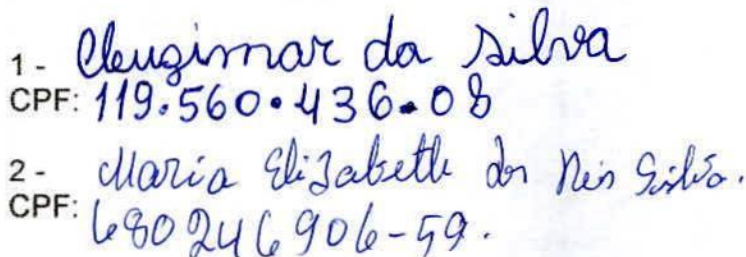 1 - Cleugimar da Silva
CPF: 119.560.436-08
2 - Maria Elizabeth dos Reis Silva.
CPF: 680246906-59.